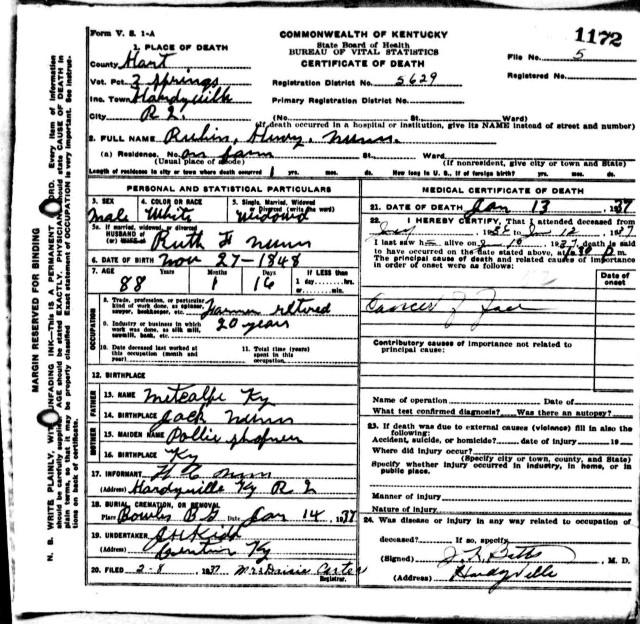 Form V. S. 1-A
COMMONWEALTH OF KENTUCKY
State Board of Health
BUREAU OF VITAL STATISTICS
CERTIFICATE OF DEATH
1172
File No. 5
Registered No.
1. PLACE OF DEATH
County Hart
Vot. Pct. 3 Springs
Inc. Town Hardyville
City R 2.
Registration District No. 5629
Primary Registration District No.
(No. St. Ward)
(If death occurred in a hospital or institution, give its NAME instead of street and number)
2. FULL NAME Rubin, Henry, Nunn.
(a) Residence. No. on farm St. Ward.
(Usual place of abode) (If nonresident, give city or town and State)
Length of residence in city or town where death occurred yrs. mos. ds. How long in U. S., if of foreign birth? yrs. mos. ds.
PERSONAL AND STATISTICAL PARTICULARS
3. SEX Male
4. COLOR OR RACE White
5. Single, Married, Widowed or Divorced (write the word) Widowed
5a. If married, widowed or divorced
HUSBAND of
(or) WIFE of Ruth F Nunn
6. DATE OF BIRTH Nov 27-1848
7. AGE Years Months Days If LESS than
88 1 16 1 day hrs.
or min.
OCCUPATION
8. Trade, profession, or particular
kind of work done, as spinner,
sawyer, bookkeeper, etc. Farmer retired
9. Industry or business in which
work was done, as silk mill,
sawmill, bank, etc. 20 years
10. Date deceased last worked at
this occupation (month and
year)
11. Total time (years)
spent in this
occupation
12. BIRTHPLACE
FATHER
13. NAME Metcalfe Ky
14. BIRTHPLACE Jack Nunn
MOTHER
15. MAIDEN NAME Pollie
16. BIRTHPLACE Ky
17. INFORMANT Nunn
(Address) Hardyville Ky R 2
18. BURIAL, CREMATION, OR REMOVAL
Place Bowles B G Date Jan 14, 1937
19. UNDERTAKER
(Address) Ky
20. FILED 2-8, 1937 Mrs Daisie Carter
Registrar.
MEDICAL CERTIFICATE OF DEATH
21. DATE OF DEATH Jan 13, 1937
22. I HEREBY CERTIFY, That I attended deceased from
to 12, 1937
I last saw h alive on 1937, death is said
to have occurred on the date stated above, at m.
The principal cause of death and related causes of importance
in order of onset were as follows:
Date of
onset
Cancer of Face
Contributory causes of importance not related to
principal cause:
Name of operation Date of
What test confirmed diagnosis? Was there an autopsy?
23. If death was due to external causes (violence) fill in also the
following:
Accident, suicide, or homicide? date of injury 19
Where did injury occur?
(Specify city or town, county, and State)
Specify whether injury occurred in industry, in home, or in
public place.
Manner of injury
Nature of injury
24. Was disease or injury in any way related to occupation of
deceased? If so, specify
(Signed) , M. D.
(Address) Hardyville
MARGIN RESERVED FOR BINDING
N. B. WRITE PLAINLY, WITH UNFADING INK—THIS IS A PERMANENT RECORD. Every item of information
should be carefully supplied. AGE should be stated EXACTLY. PHYSICIANS should state CAUSE OF DEATH in
plain terms, so that it may be properly classified. Exact statement of OCCUPATION is very important. See instruc-
tions on back of certificate.